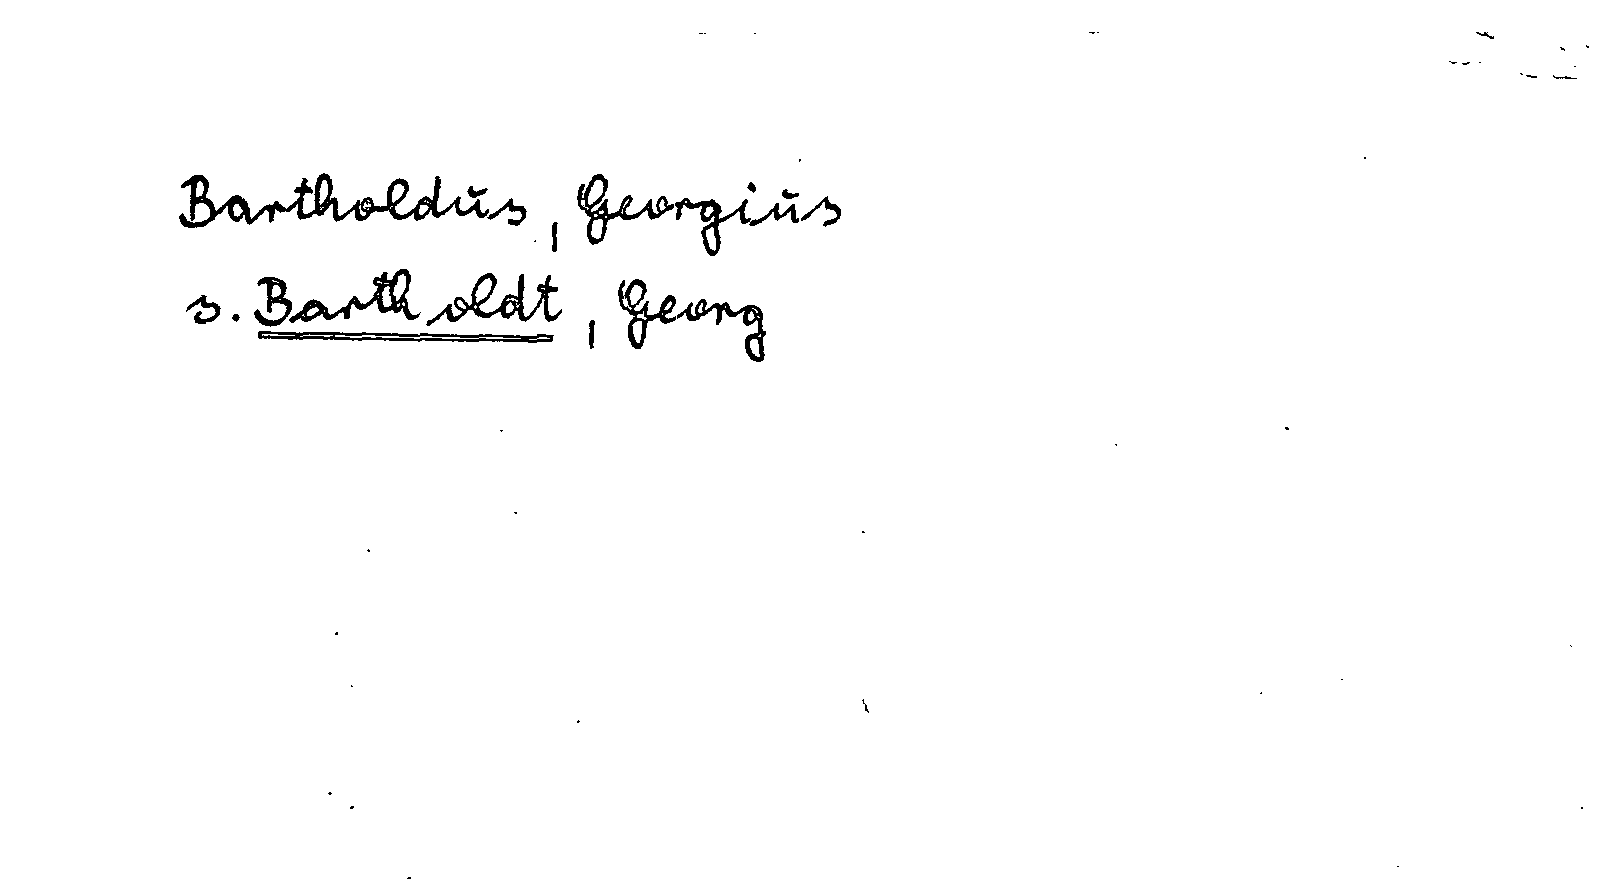 Bartholdus, Georgius
s. Bartholdt, Georg